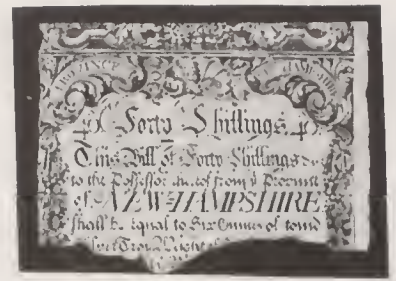 PROVINCE HAMPSHIRE
Forty Shillings
This Bill of Forty Shillings due
to the Possessor thereof from yᵉ Province
of NEW-HAMPSHIRE
shall be equal to Six Ounces of coind
Silver Troy Weight of